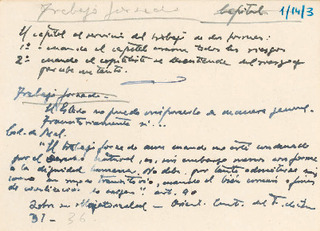 Trabajo forzado Capital 1/14/3
El capital al servicio del trabajo de dos formas:
1º cuando el capital asume todos los riesgos
2º cuando el capitalista se desentiende del riesgo y
percibe un tanto.
Trabajo forzado.
El Estado no puede imponerlo de manera general.
Transitoriamente si...
Cod. de Mal.
"El trabajo forzado aun cuando no esté condenado
por el derecho natural, es, sin embargo menos conforme
a la dignidad humana. No debe por tanto admitirse
como transitorio, cuando el bien común
de civilización lo exigen" art. 90
31 - 36